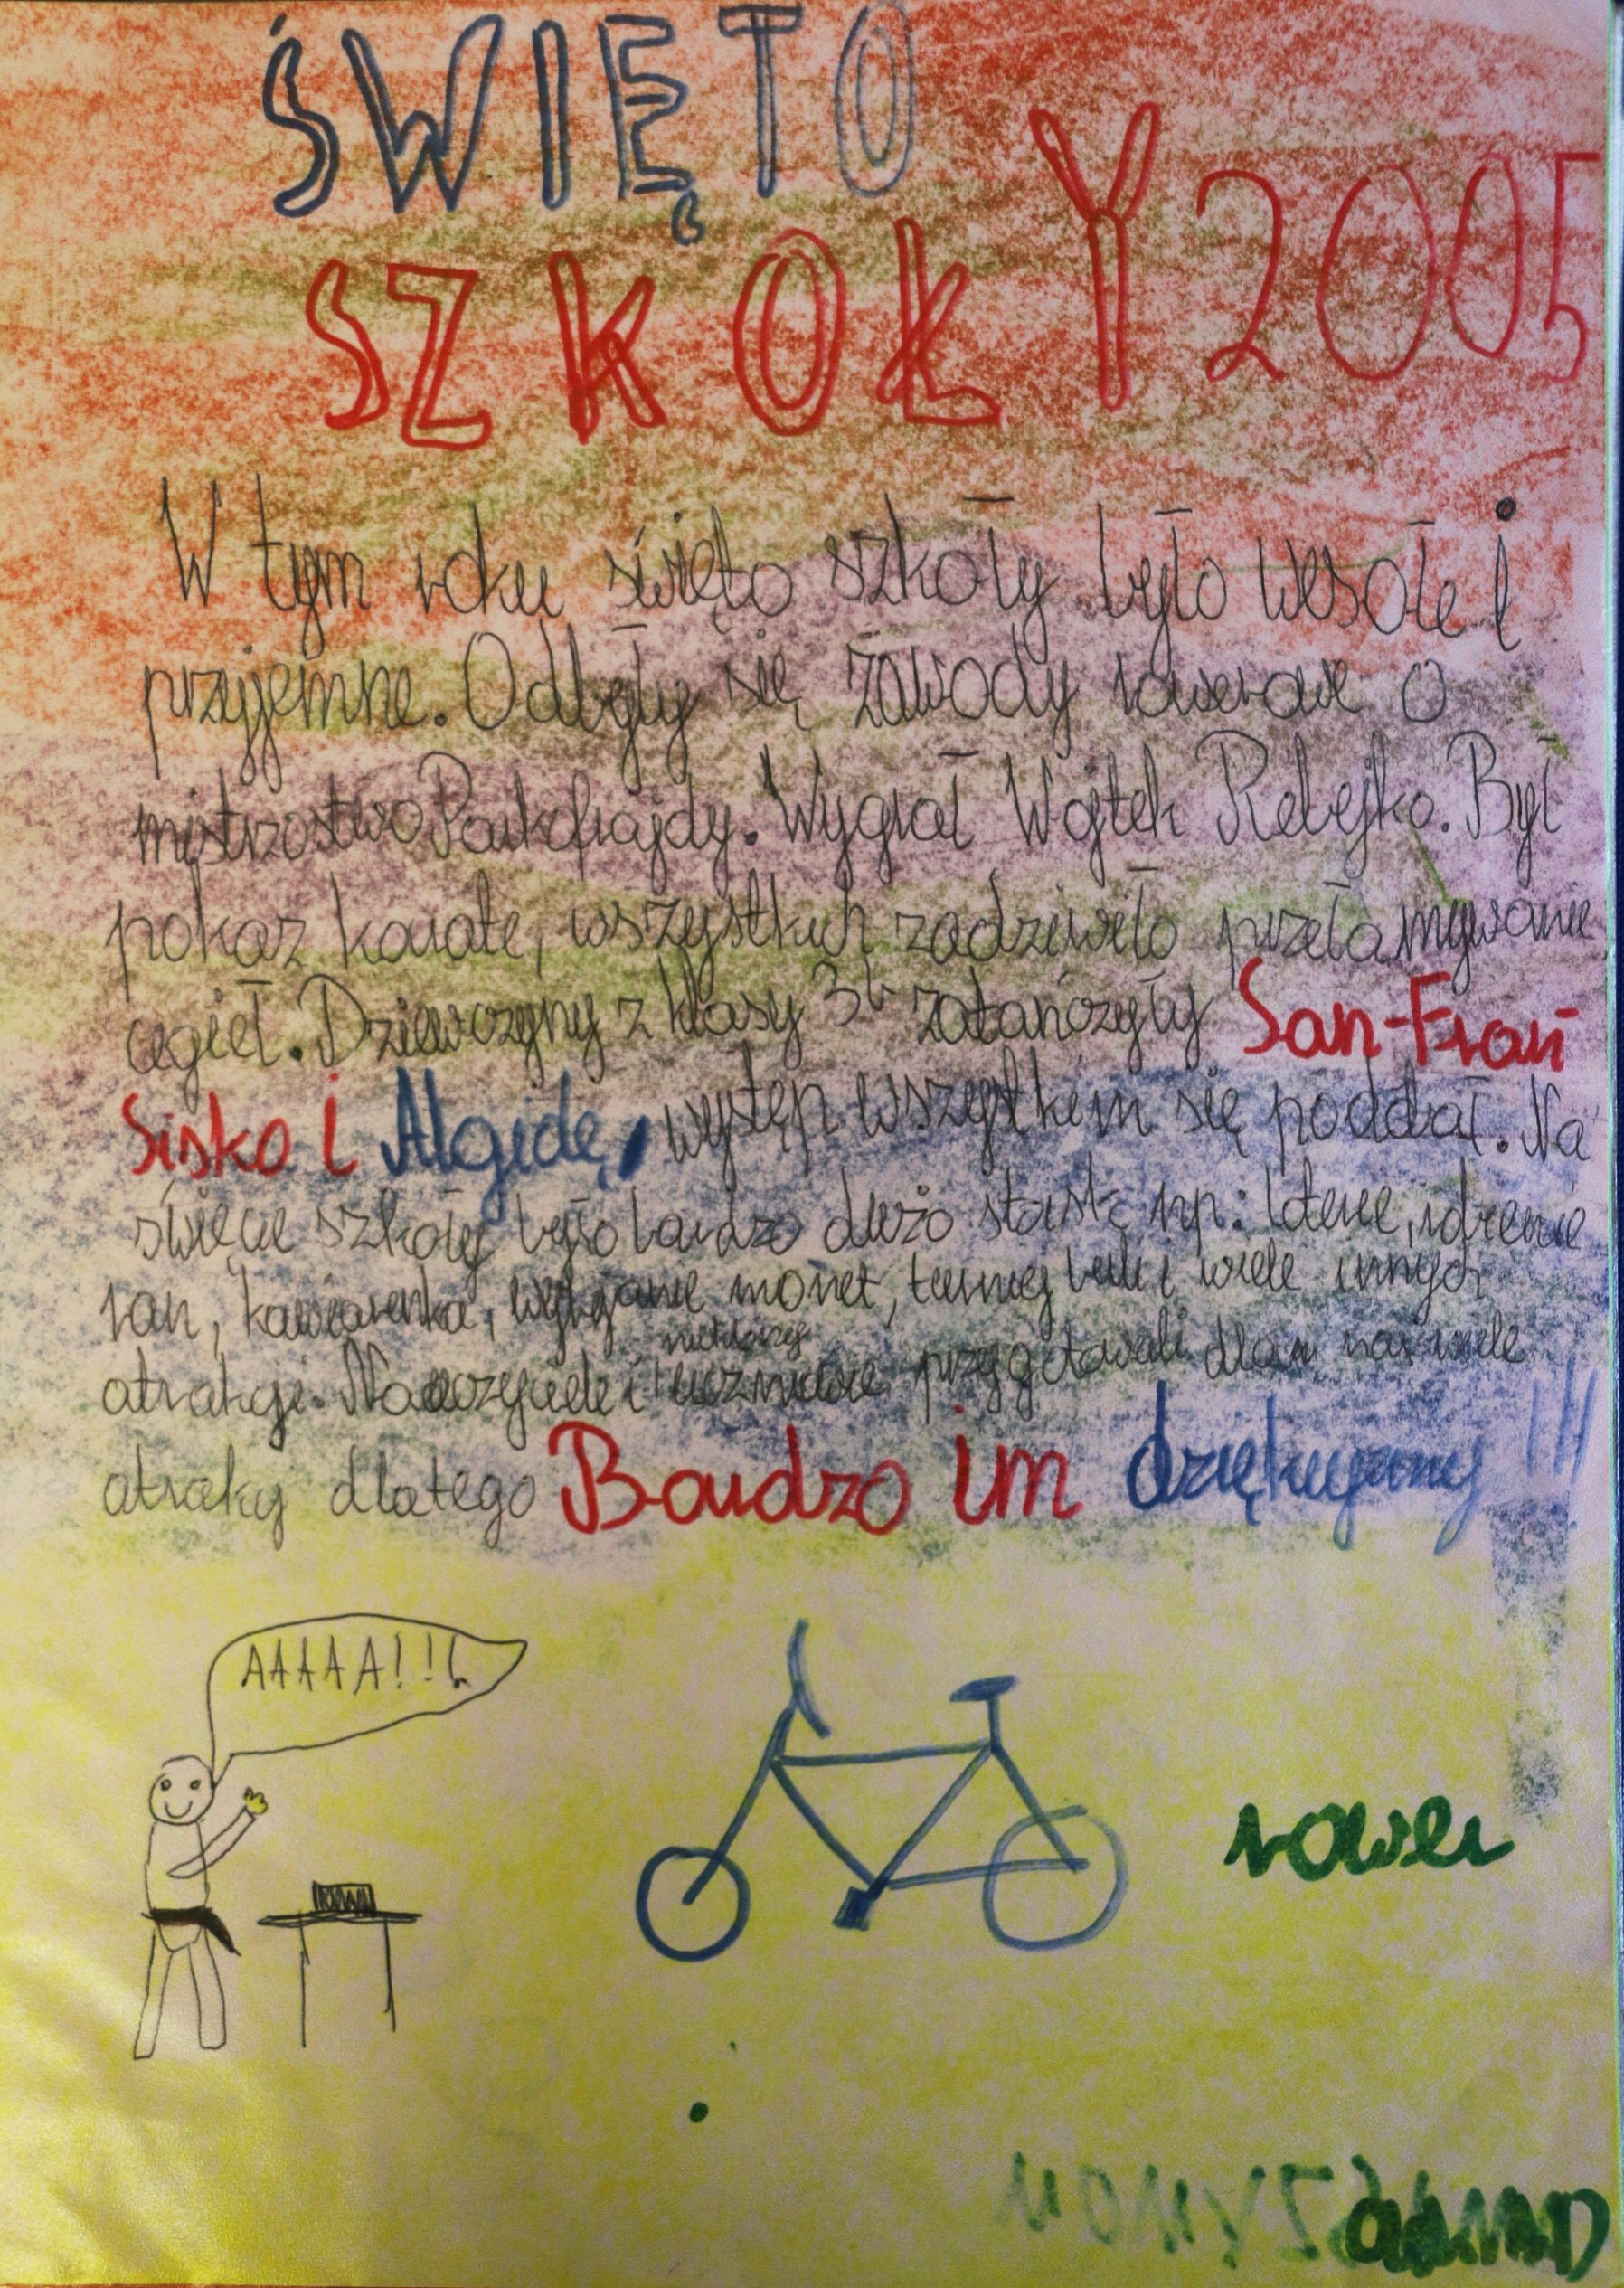 ŚWIĘTO
SZKOŁY 2005
W tym roku święto szkoły było wesołe i
przyjemne. Odbyły się zawody rowerowe o
mistrzostwo Parkfrajdy. Wygrał Wojtek Rebejko. Był
pokaz karate, wszystkich zadziwiło przełamywanie
cegieł. Dziewczyny z klasy 3b zatańczyły San-Fran
Sisko i Algidę, występ wszystkim się poddał. Na
święcie szkoły było bardzo dużo stoisk np: loterie,
ran, kawiarenka, wybijanie monet, turniej kulki i wiele innych
atrakcji. Nauczyciele i niektórzy uczniowie przygotowali dla nas wiele
atrakcji dlatego Bardzo im dziękujemy !!!
AAAAA!!!
rower